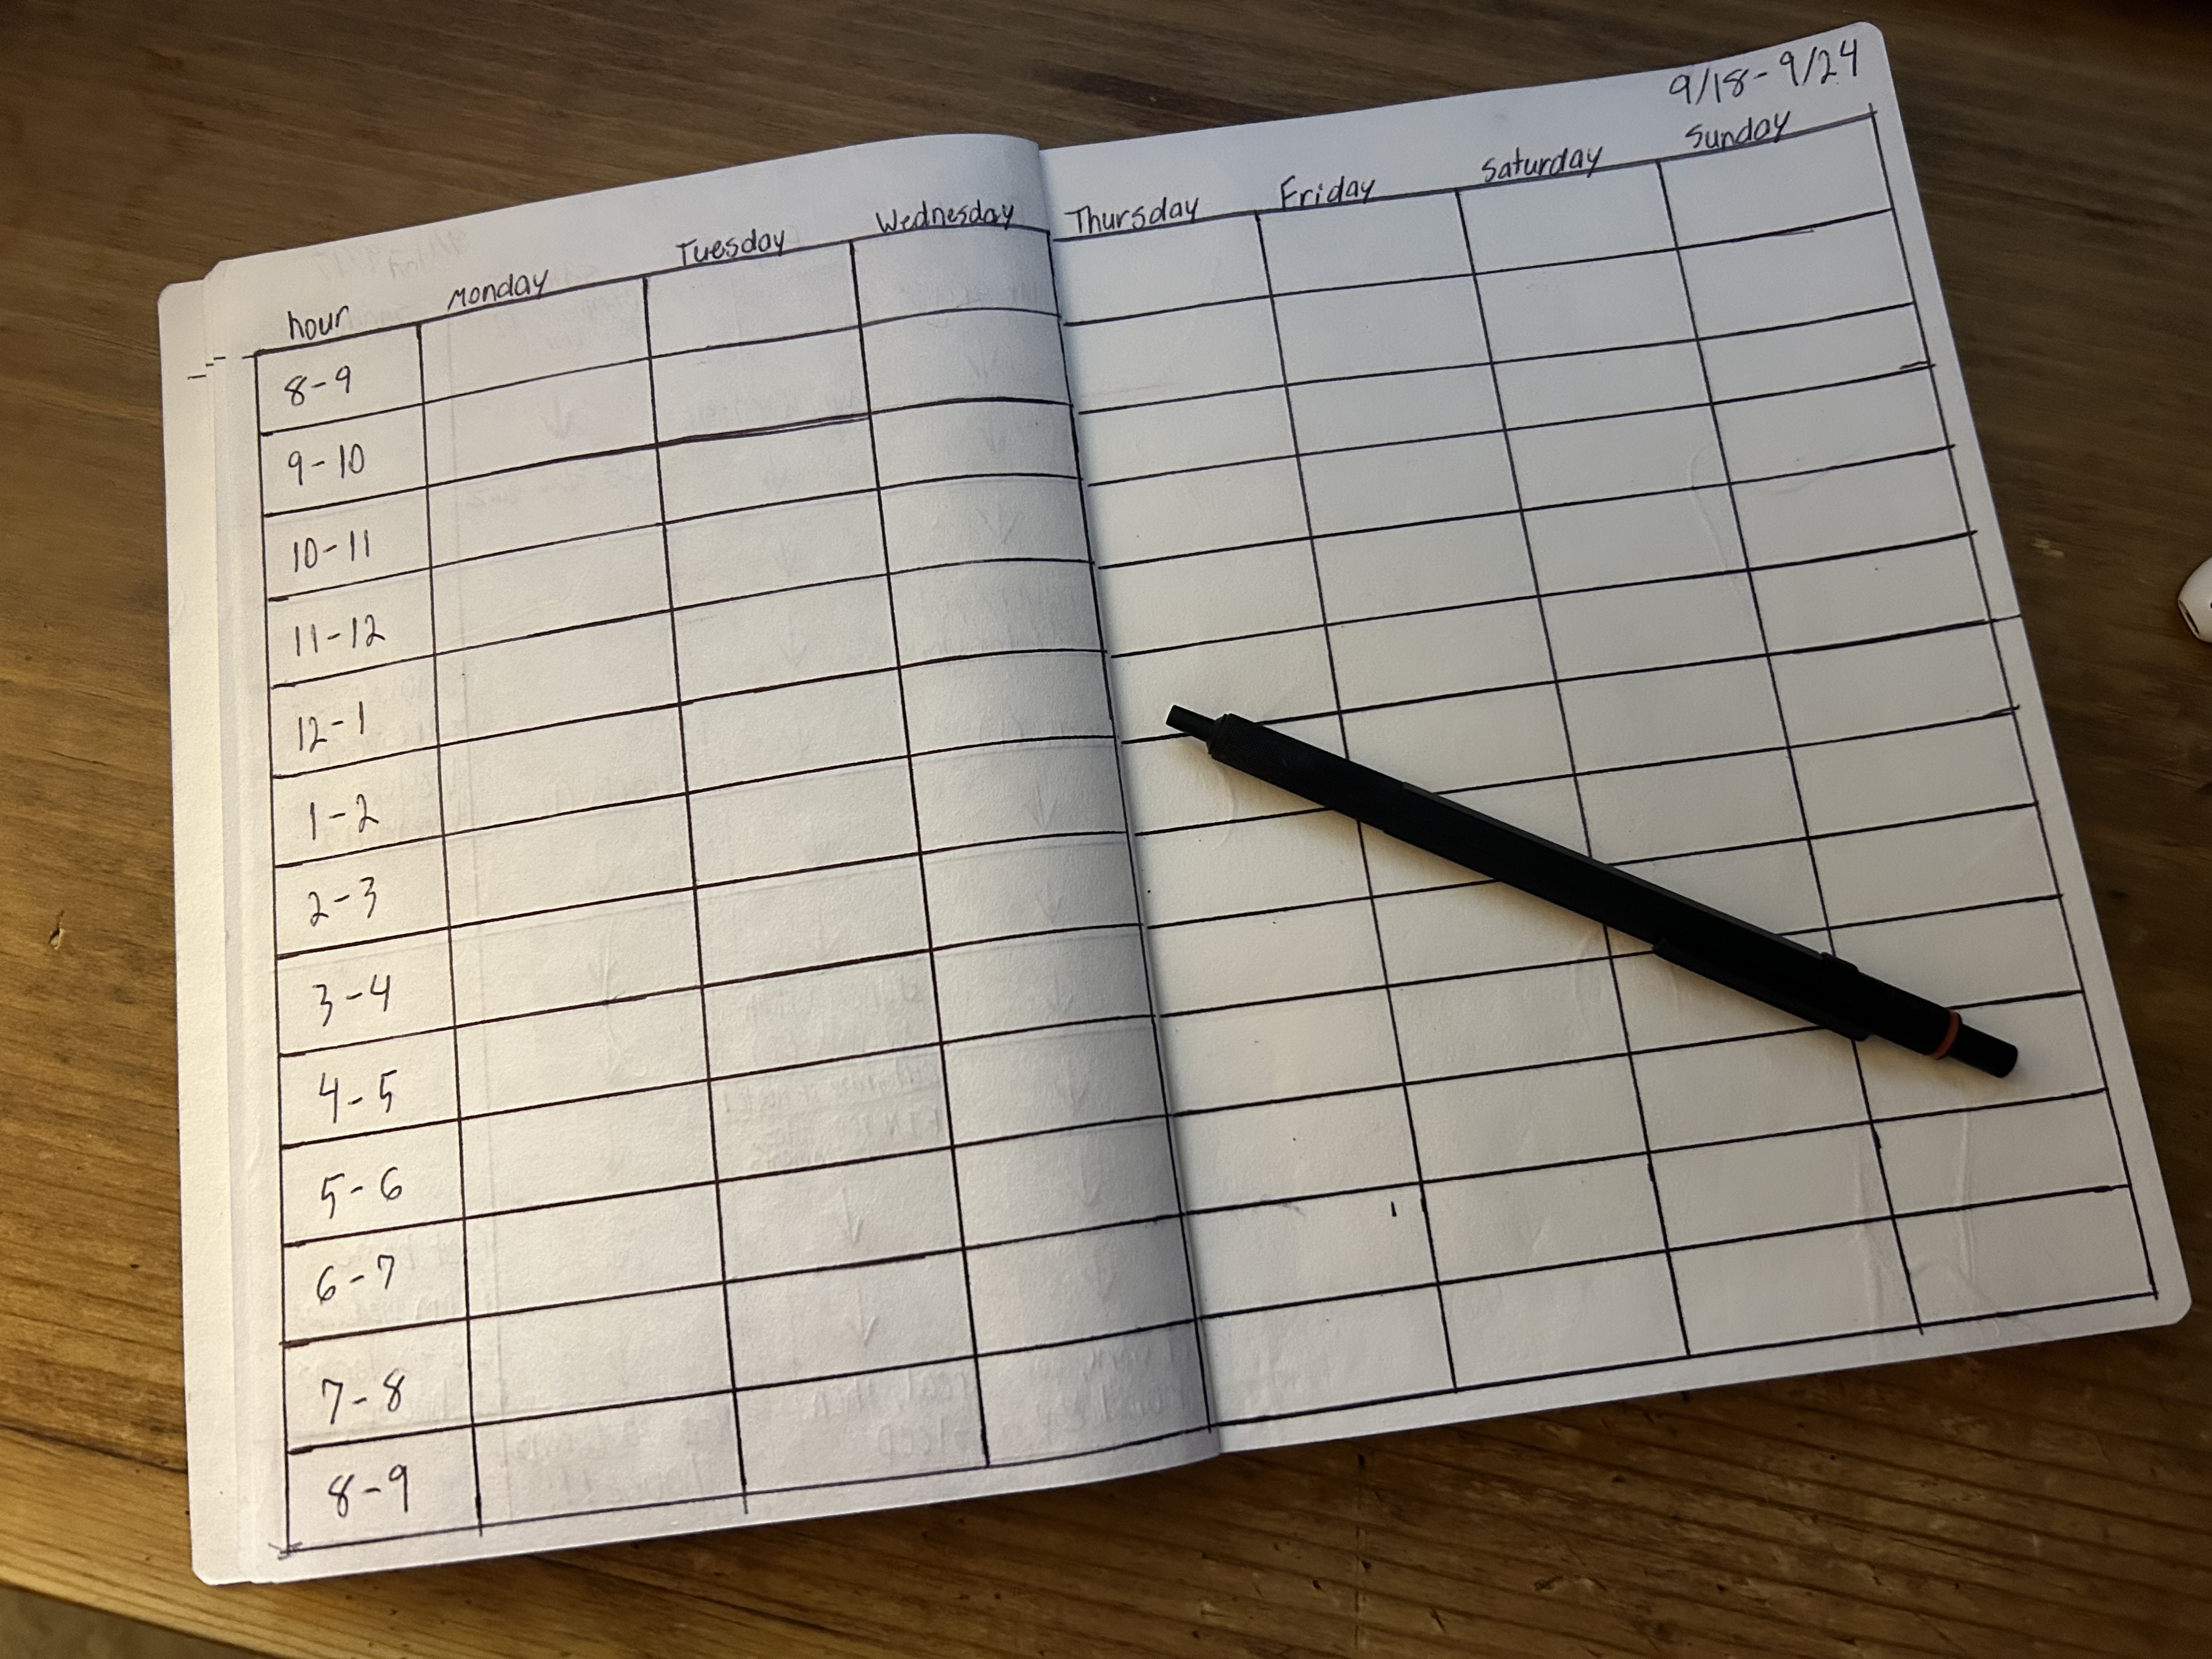 9/18-9/24
hour Monday Tuesday Wednesday Thursday Friday Saturday Sunday
8-9
9-10
10-11
11-12
12-1
1-2
2-3
3-4
4-5
5-6
6-7
7-8
8-9